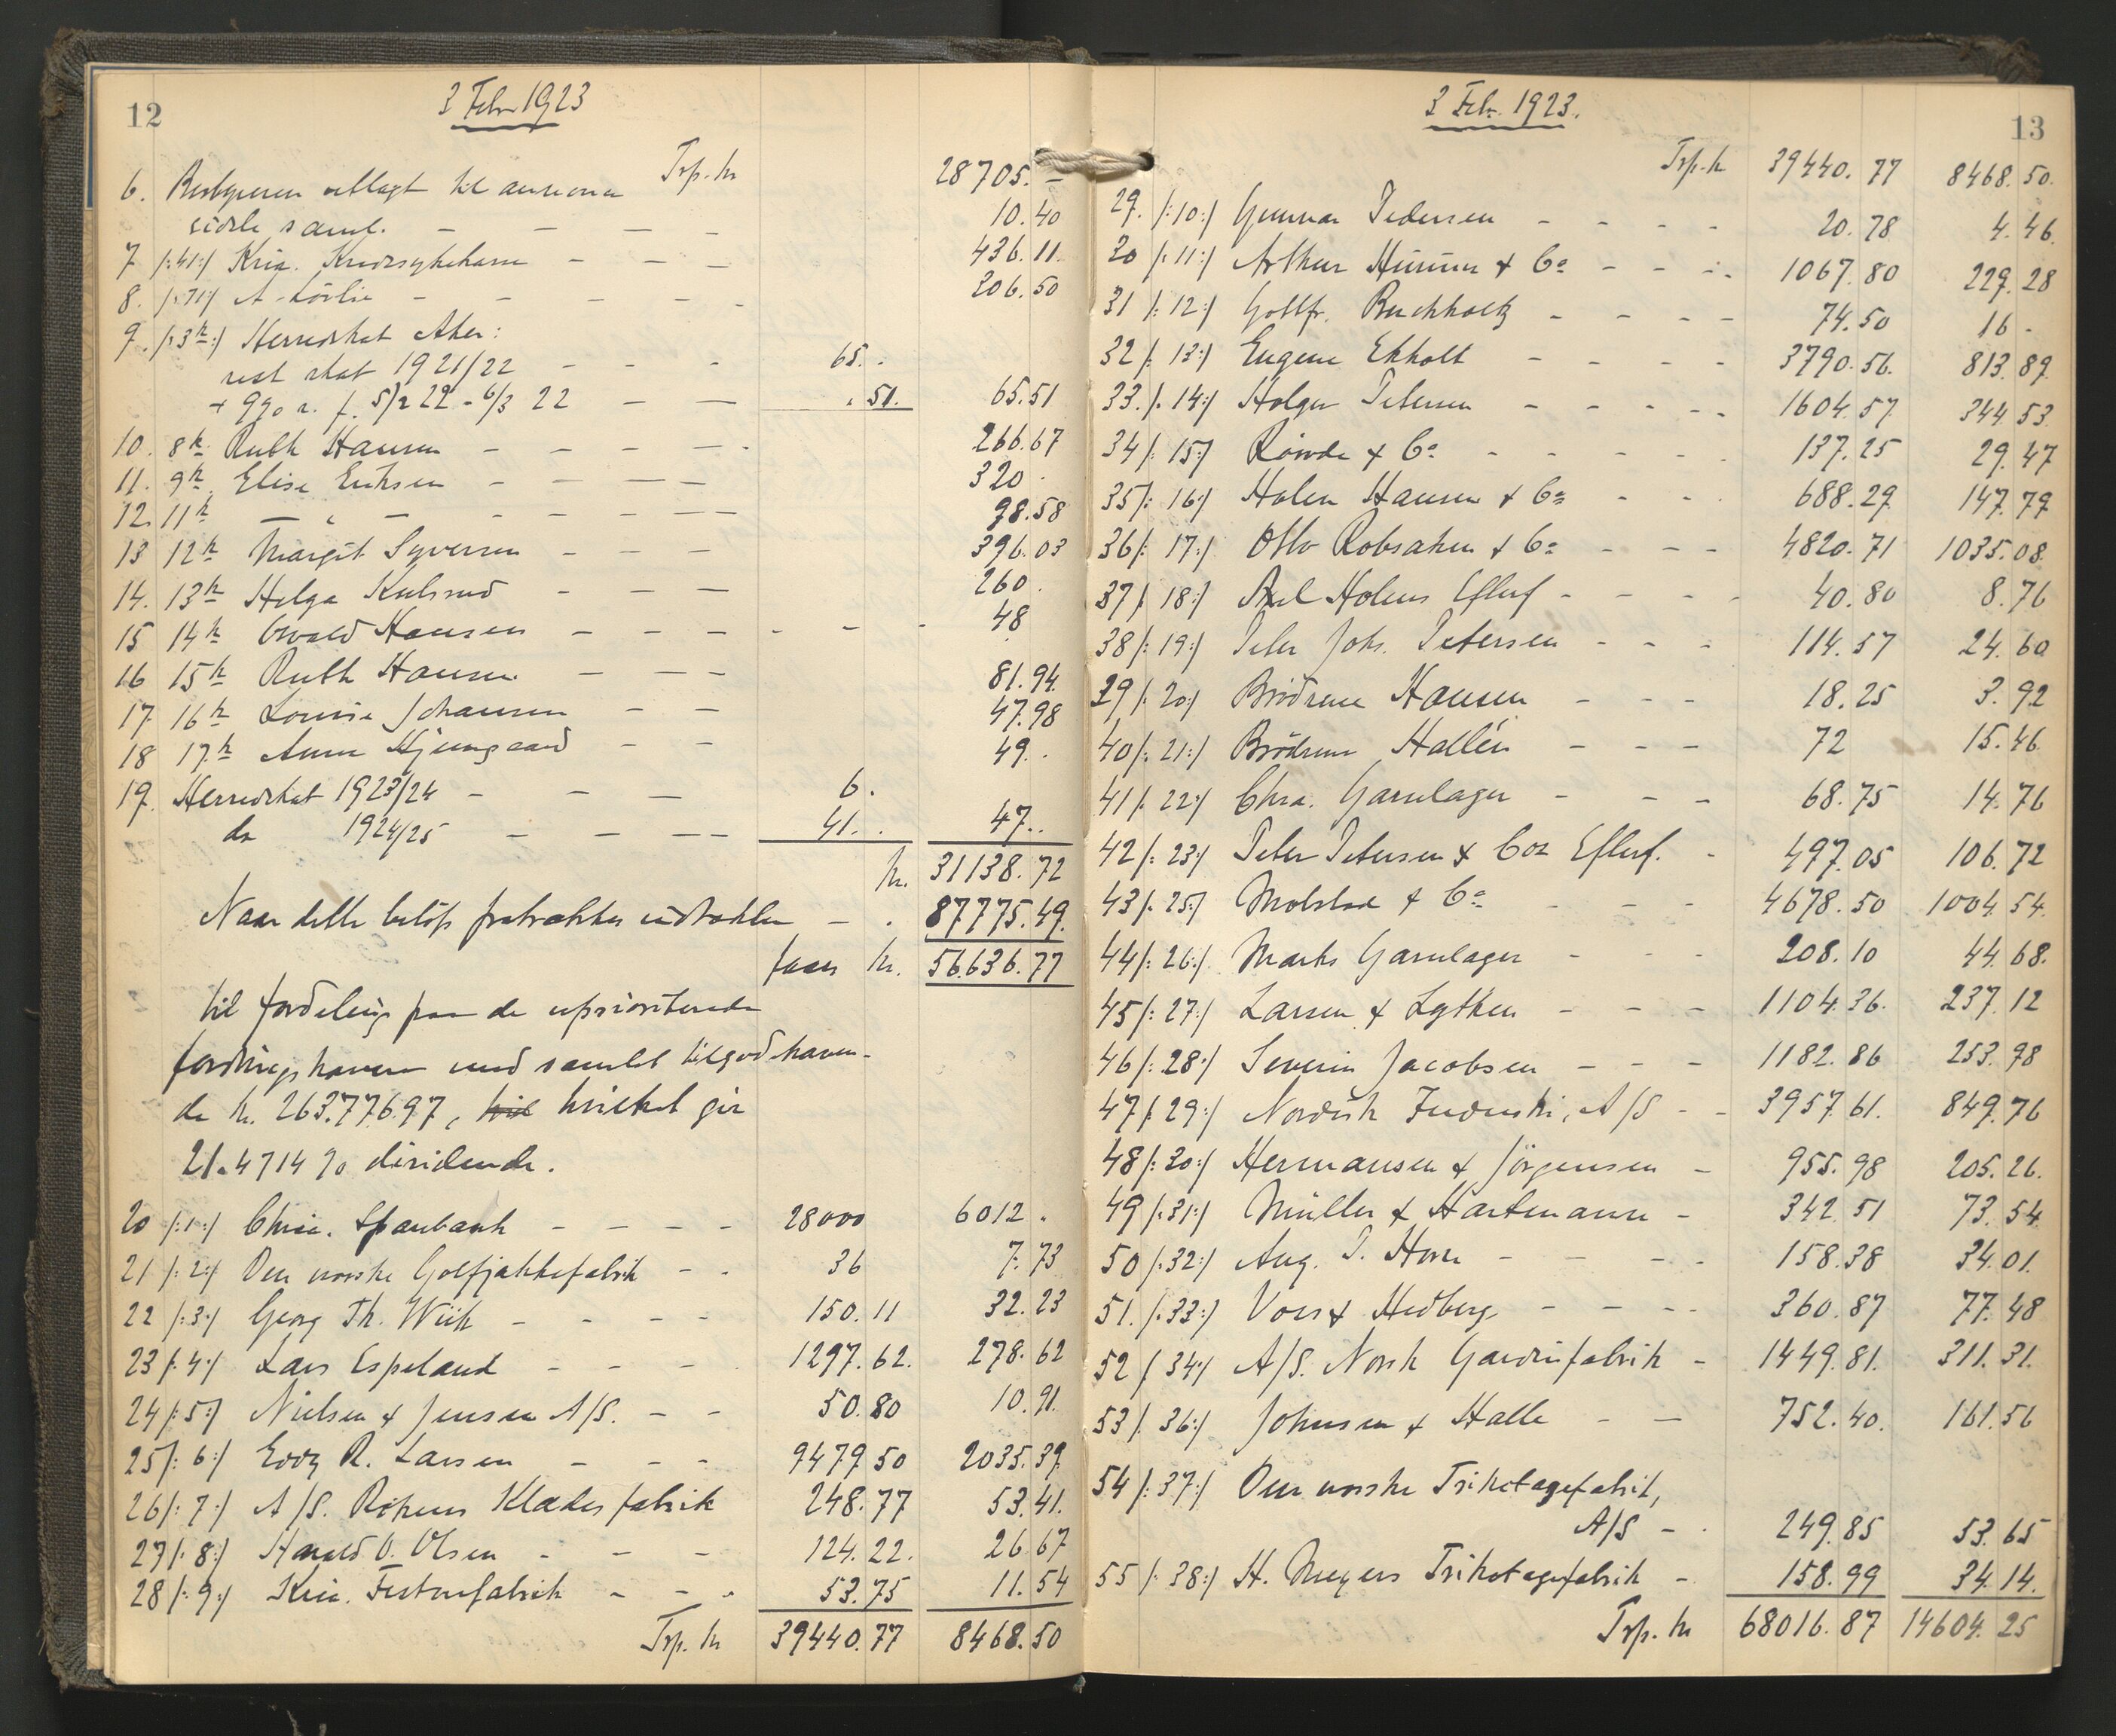 12
3 Febr 1923
Trp. kr 28705. –
6. utlagt til annonce
sidste saml. – – – – 10.40
7 /:41:/ Kria. Kredssykekasse – – – 436.11.
8. /:71:/ A. Lövlie – – – – – 206.50
9. /:3k:/ Herredskat Aker:
rest skat 1921/22 – – – 65. .
+ 9% r. f. 5/12 22 - 6/3 22 – – . 51. 65.51
10. 8k Ruth Hansen – – – – – 266.67
11. 9k. Elise Eriksen – – – – 320 .
12. 11k – " – – – – – – 98.58
13 12k Margit Syversen – – – 396.03
14. 13k Helga Kulsrud – – – 260 .
15 14k Osvald Hansen – – – – – – 48
16 15k Ruth Hansen – – – 81.94.
17 16k Louise Johansen – – 47.98
18 17.k Anna Kjemgaard – – 49. .
19. Herredskat 1923/24 – – – 6 .
do 1924/25 – – – – 41. . 47. .
kr. 31138.72
Naar dette beløp fratrækkes indtækten – . 87775.49.
faaes kr. 56.636.77
til fordeling paa de uprioriterede
fordringshavere med samlet tilgodehaven-
de kr. 263.776.97, hvilket gir
21.4714 % dividende.
20 /:1:/ Chria. Sparebank – – – – 28000 6012 .
21 /:2:/ Den norske Golfjakkefabrik – – 36 7.73
22 /:3:/ Georg Th. Wiik – – – – 150.11 32.23
23 /:4:/ Lars Espeland – – – – 1297.62. 278.62
24 /:5:/ Nielsen & Jensen A/S. – – 50.80 10.91.
25 /:6:/ Eddy R. Larsen – – – 9479.50 2035.39
26 /:7:/ A/S. Røkens Klædesfabrik 248.77 53.41.
27 /:8:/ Harald O. Olsen – – – 124.22. 26.67
28 /:9:/ Kria. Fabrik – – – 53.75 11.54
Trp. kr 39440.77 8468.50
13
3 Febr. 1923.
Trp. kr 39440.77 8468.50.
29. /:10:/ Gunnar Pedersen – – – – 20.78 4.46.
30 /:11:/ Arthur & Co – – – 1067.80 229.28
31 /:12:/ Gottfr. Buchholtz – – – – 74.50 16 –
32 /:13:/ Eugene Ekholt – – – – 3790.56. 813.89
33. /:14:/ Holger Petersen – – – – – 1604.57 344.53
34 /:15:/ & Co – – – – – 137.25 29.47
35 /:16:/ Holen Hansen & Co – – . 688.29 147.79
36 /:17:/ Otto Robsahm & Co – – – 4820.71 1035.08.
37 /:18:/ Axel Holms Efterf – – – – 40.80 8.76
38 /:19:/ Peter Johs. Petersen – – – 114.57 24.60
39 /:20:/ Brödrene Hansen – – – 18.25 3.92
40 /:21:/ Brödrene Hallén – – – 72 15.46.
41 /:22:/ Chra. Garnlager – – – 68.75 14.76
42 /:23:/ Peter Petersen & Cos Efterf. – 497.05 106.72
43 /:25:/ Molstad & Co – – – 4678.50 1004.54.
44 /:26:/ Marks Garnlager – – – 208.10 44.68.
45 /:27:/ Larsen & Lythen – – – 1104.36. 237.12
46 /:28:/ Severin Jacobsen – – – 1182.86 253.98
47 /:29:/ Nordisk Industri, A/S – – 3957.61. 849.76
48 /:30:/ Hermansen & Jörgensen – 955.98 205.26.
49 /:31:/ Müller & Hartmann – 342.51 73.54.
50 /:32:/ Aug. P. – – – – 158.38 34.01.
51. /:33:/ Voss & Hedberg – – – – 360.87 77.48
52 /:34:/ A/S. Norsk Gardinfabrik – 1449.81. 311.31.
53 /:36:/ Johnsen & Halle – – 752.40. 161.56
54 /:37:/ Den norske Trikotagefabrik,
A/S – . 249.85 53.65
55 /:38:/ H. Meyers Trikotagefabrik – 158.99 34.14.
Trp. kr 68016.87 14604.25